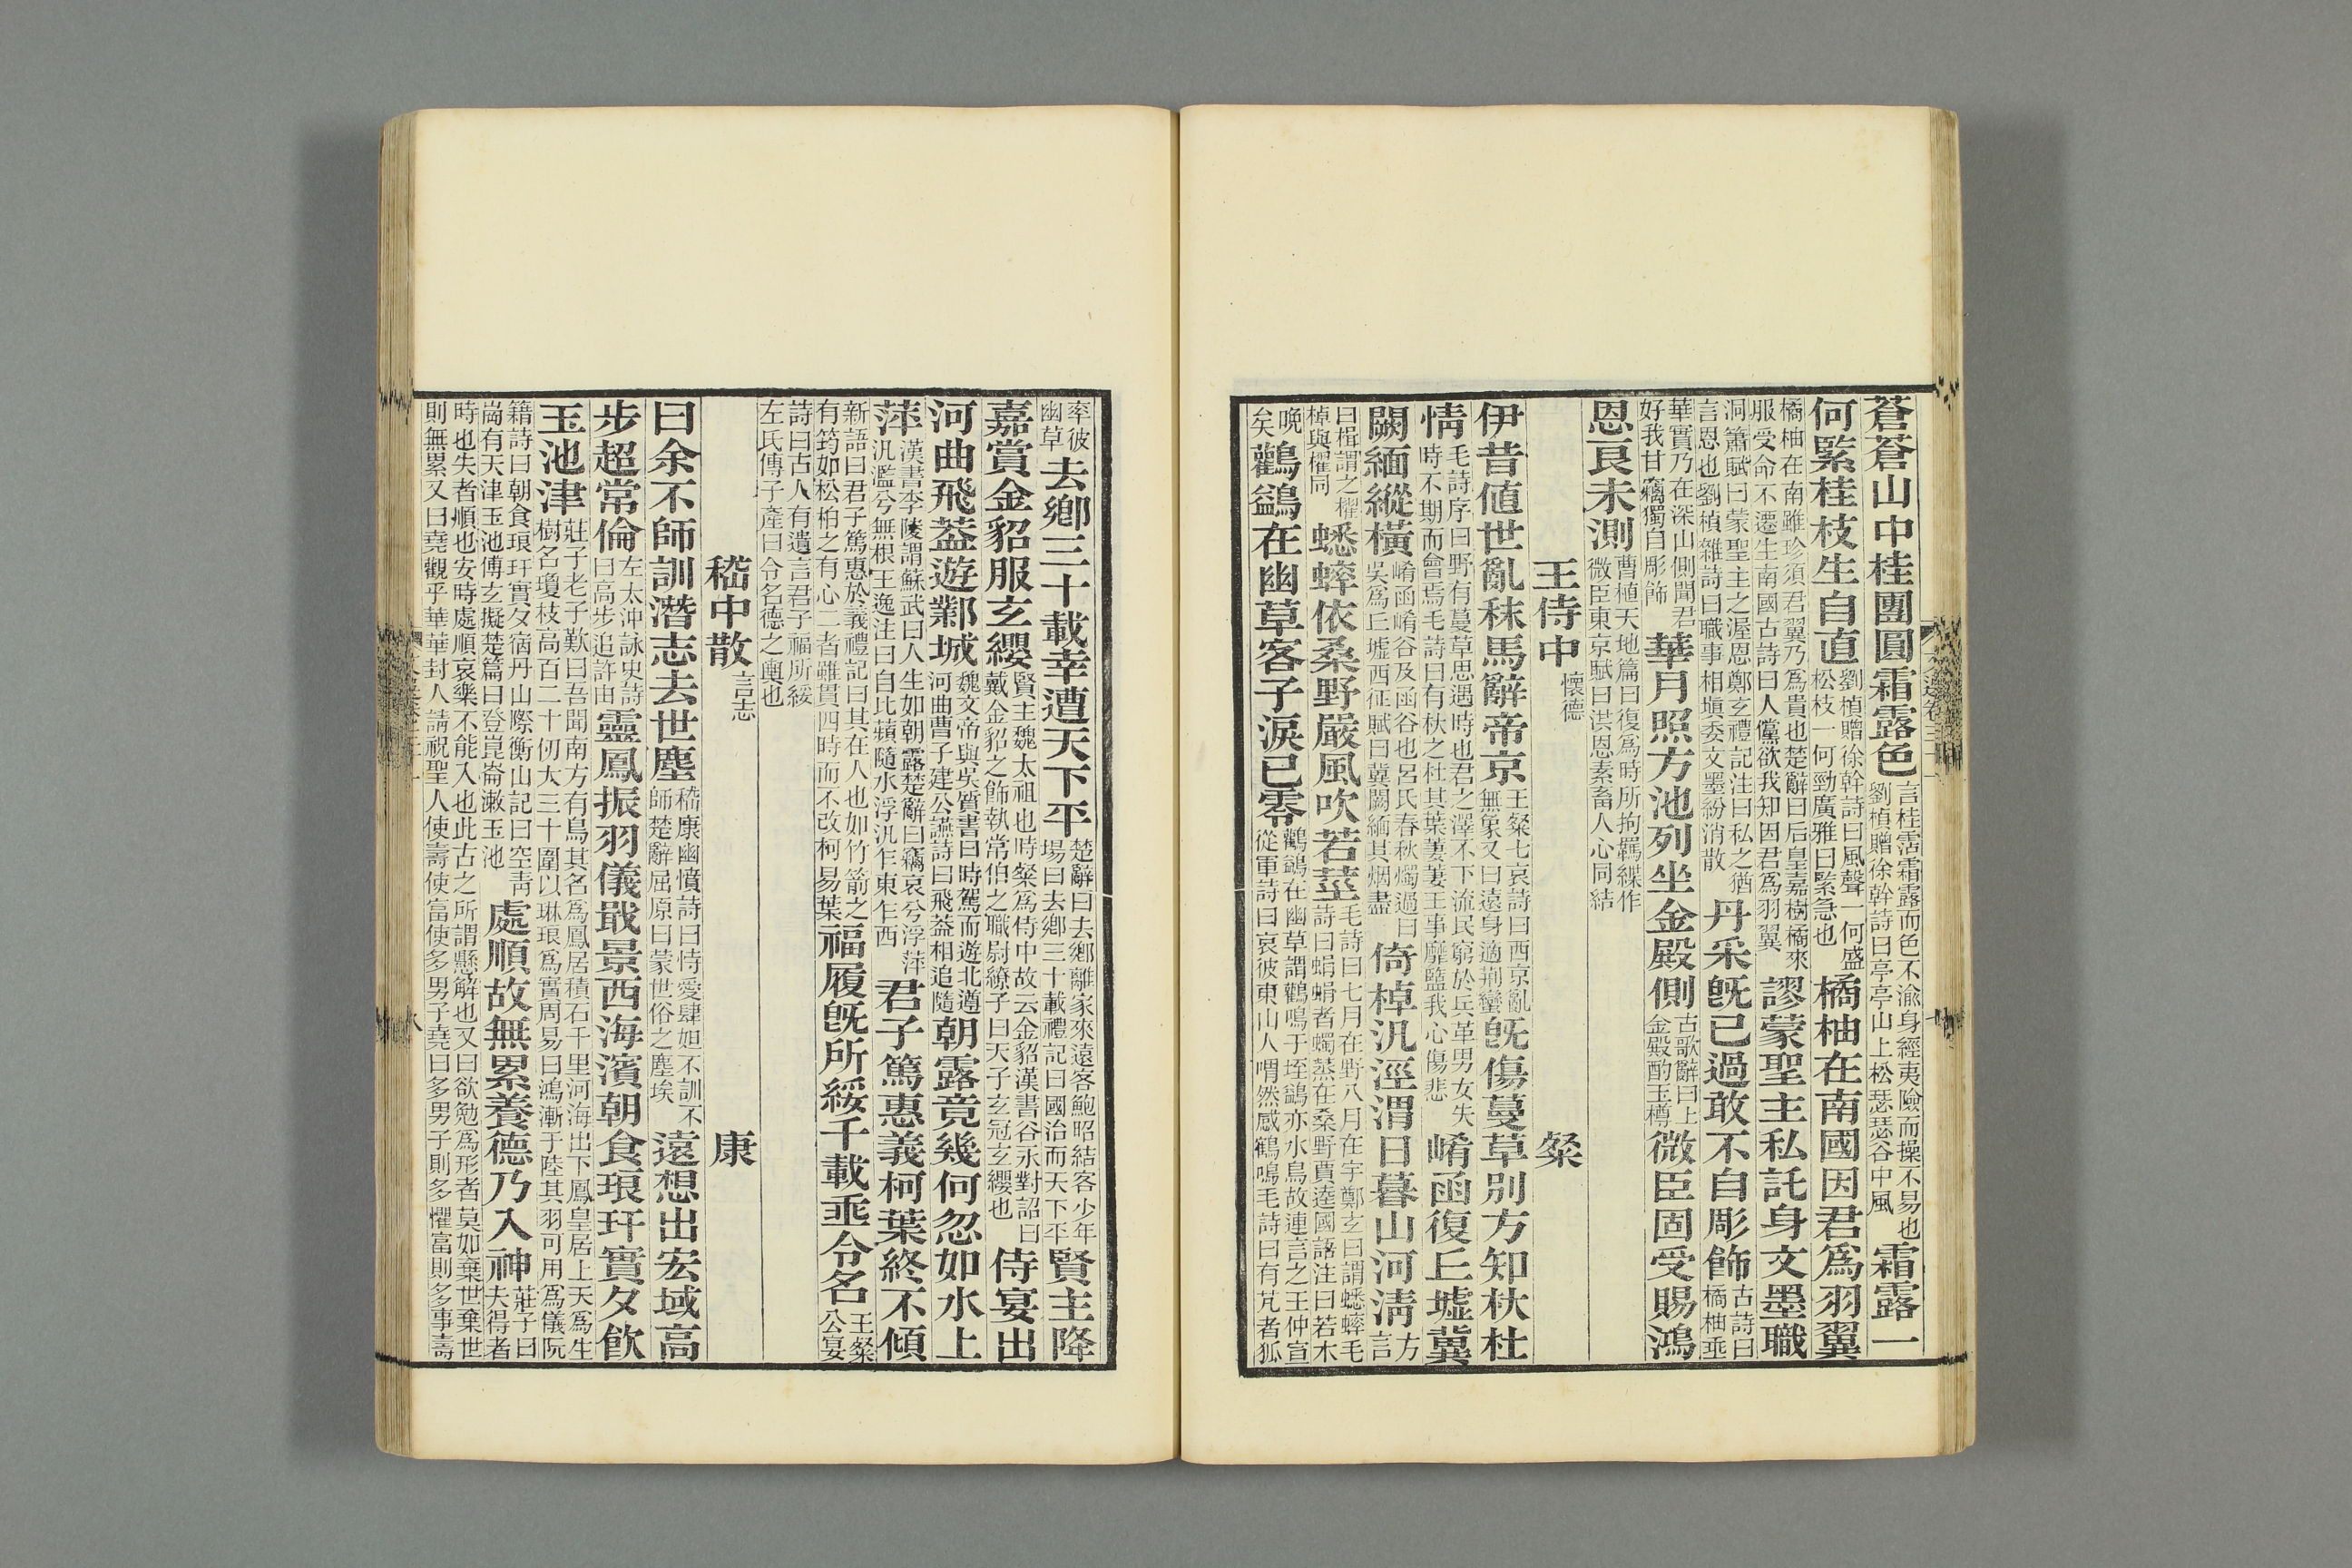 蒼蒼山中桂團圓霜露色言桂霑霜露而色不渝身經夷險而操不易也劉楨贈徐幹詩曰亭亭山上松瑟瑟谷中風霜露一
何緊桂枝生自直劉楨贈徐幹詩曰風聲一何盛松枝一何勁廣雅曰緊急也橘柚在南國因君爲羽翼
橘柚在南雖珍須君翼乃爲貴也楚辭曰后皇嘉樹橘來服受命不遷生南國古詩曰人儻欲我知因君爲羽翼謬蒙聖主私託身文墨職
洞簫賦曰蒙聖主之渥恩鄭玄禮記注曰私之猶言恩也劉楨雜詩曰職事相塡委文墨紛消散丹采既已過敢不自彫飾古詩曰橘柚垂
華實乃在深山側聞君好我甘竊獨自彫飾華月照方池列坐金殿側古歌辭曰上金殿酌玉樽微臣固受賜鴻
恩良未測曹植天地篇曰復爲時所拘羈緤作微臣東京賦曰洪恩素畜人心同結
王侍中懷德 粲
伊昔値世亂秣馬辭帝京王粲七哀詩曰西京亂無象又曰遠身適荆蠻既傷蔓草別方知杕杜
情毛詩序曰野有蔓草思遇時也君之澤不下流民窮於兵革男女失時不期而會焉毛詩曰有杕之杜其葉萋萋王事靡盬我心傷悲崤函復丘墟冀
闕緬縱橫崤函崤谷及函谷也呂氏春秋燭過曰吳爲丘墟西征賦曰冀闕緬其烟盡倚棹汎涇渭日暮山河清方言
曰楫謂之櫂棹與櫂同蟋蟀依桑野嚴風吹若莖毛詩曰七月在野八月在宇鄭玄曰謂蟋蟀毛詩曰蜎蜎者蠋蒸在桑野賈逵國語注曰若木
晚矣鸛鷁在幽草客子淚已零鸛鷁在幽草謂鸛鳴于垤鷁亦水鳥故連言之王仲宣從軍詩曰哀彼東山人喟然感鸛鳴毛詩曰有芃者狐
率彼幽草去鄉三十載幸遭天下平楚辭曰去鄉離家來遠客鮑昭結客少年場曰去鄉三十載禮記曰國治而天下平賢主降
嘉賞金貂服玄纓賢主魏太祖也時粲爲侍中故云金貂漢書谷永對詔曰戴金貂之飾執常伯之職尉繚子曰天子玄冠玄纓也侍宴出
河曲飛蓋遊鄴城魏文帝與吳質書曰時駕而遊北遵河曲曹子建公讌詩曰飛蓋相追隨朝露竟幾何忽如水上
萍漢書李陵謂蘇武曰人生如朝露楚辭曰竊哀兮浮萍汎濫兮無根王逸注曰自比蘋隨水浮汎乍東乍西君子篤惠義柯葉終不傾
新語曰君子篤惠於義禮記曰其在人也如竹箭之有筠如松柏之有心二者雖貫四時而不改柯易葉福履既所綏千載垂令名王粲公宴
詩曰古人有遺言君子福所綏左氏傳子產曰令名德之輿也
嵇中散言志 康
曰余不師訓潛志去世塵嵇康幽憤詩曰恃愛肆姐不訓不師楚辭屈原曰蒙世俗之塵埃遠想出宏域高
步超常倫左太沖詠史詩曰高步追許由靈鳳振羽儀戢景西海濱朝食琅玕實夕飮
玉池津莊子老子歎曰吾聞南方有鳥其名爲鳳居積石千里河海出下鳳皇居上天爲生樹名瓊枝高百二十仞大三十圍以琳琅爲實周易曰鴻漸于陸其羽可用爲儀阮
籍詩曰朝食琅玕實夕宿丹山際衡山記曰空青崗有天津玉池傅玄擬楚篇曰登崑崙漱玉池處順故無累養德乃入神莊子曰夫得者
時也失者順也安時處順哀樂不能入也此古之所謂懸解也又曰欲勉爲形者莫如棄世棄世則無累又曰堯觀乎華華封人請祝聖人使壽使富使多男子堯曰多男子則多懼富則多事壽
文選卷三十一 八